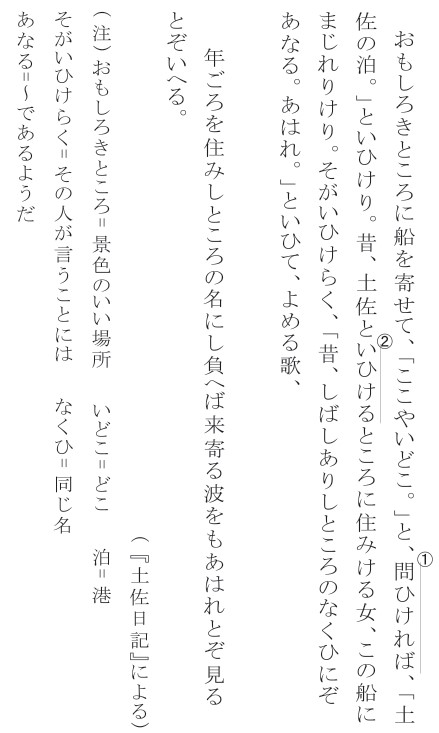 おもしろきところに船を寄せて、「ここやいどこ。」と、①問ひければ、「土
佐の泊。」といひけり。昔、土佐と②いひけるところに住みける女、この船に
まじれりけり。そがいひけらく、「昔、しばしありしところのなくひにぞ
あなる。あはれ。」といひて、よめる歌、
年ごろを住みしところの名にし負へば来寄る波をもあはれとぞ見る
とぞいへる。
(『土佐日記』による)
(注)おもしろきところ=景色のいい場所 いどこ=どこ 泊=港
そがいひけらく=その人が言うことには なくひ=同じ名
あなる=〜であるようだ